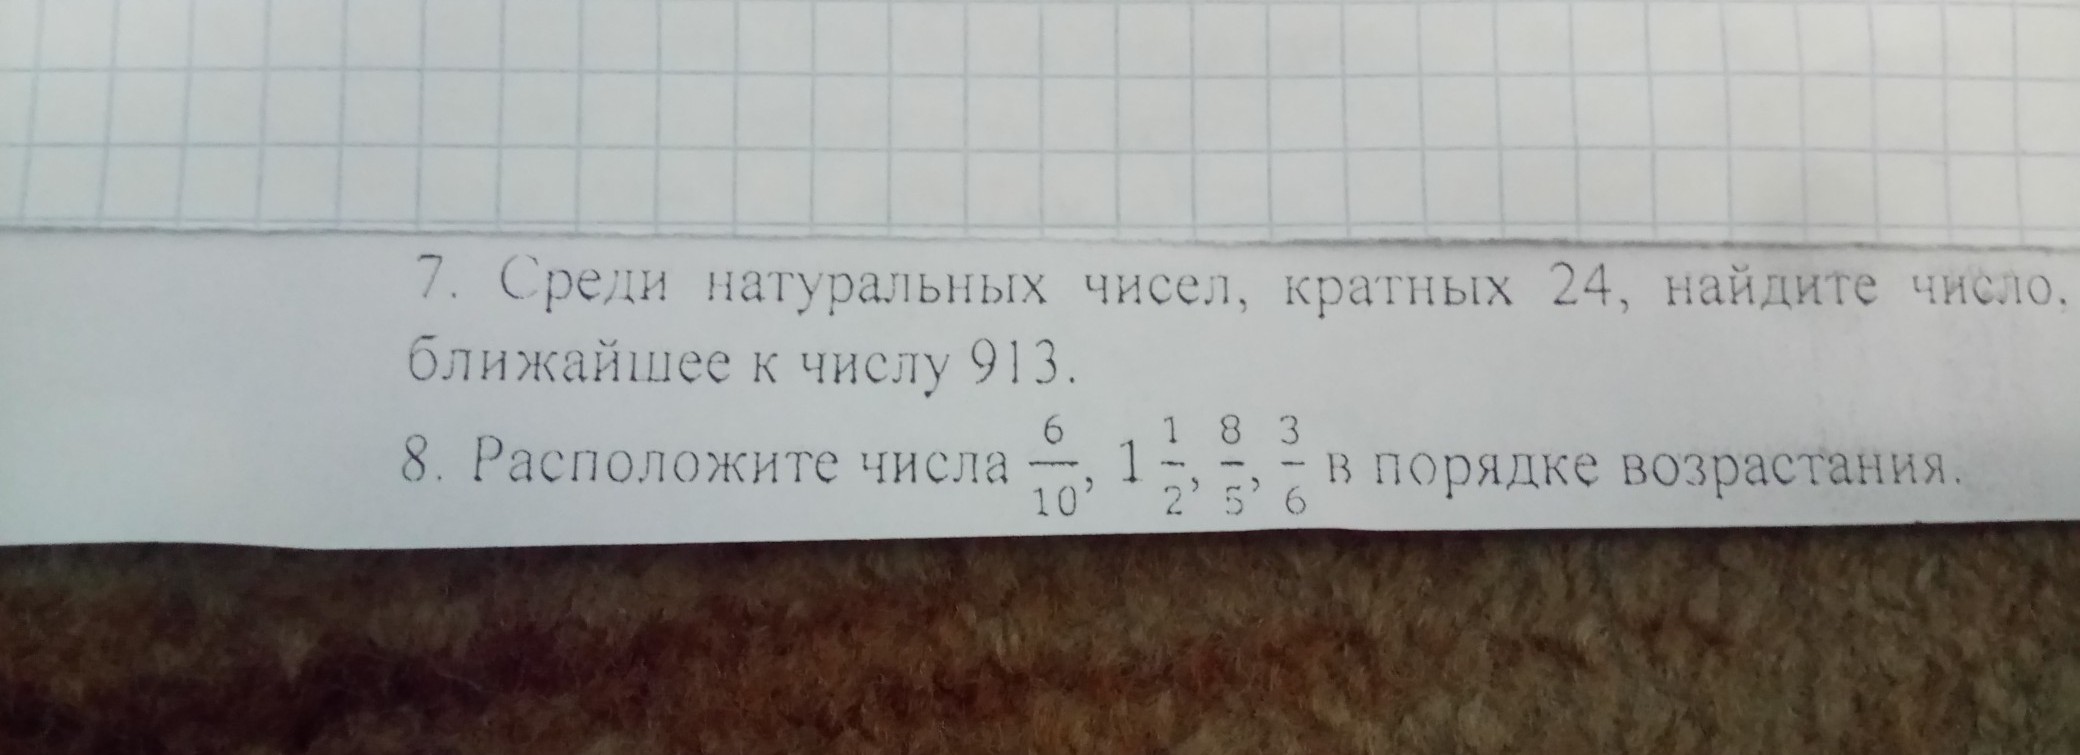 7. Среди натуральных чисел, кратных 24, найдите число,
ближайшее к числу 913.
8. Расположите числа 6/10, 1 1/2, 8/5, 3/6 в порядке возрастания.